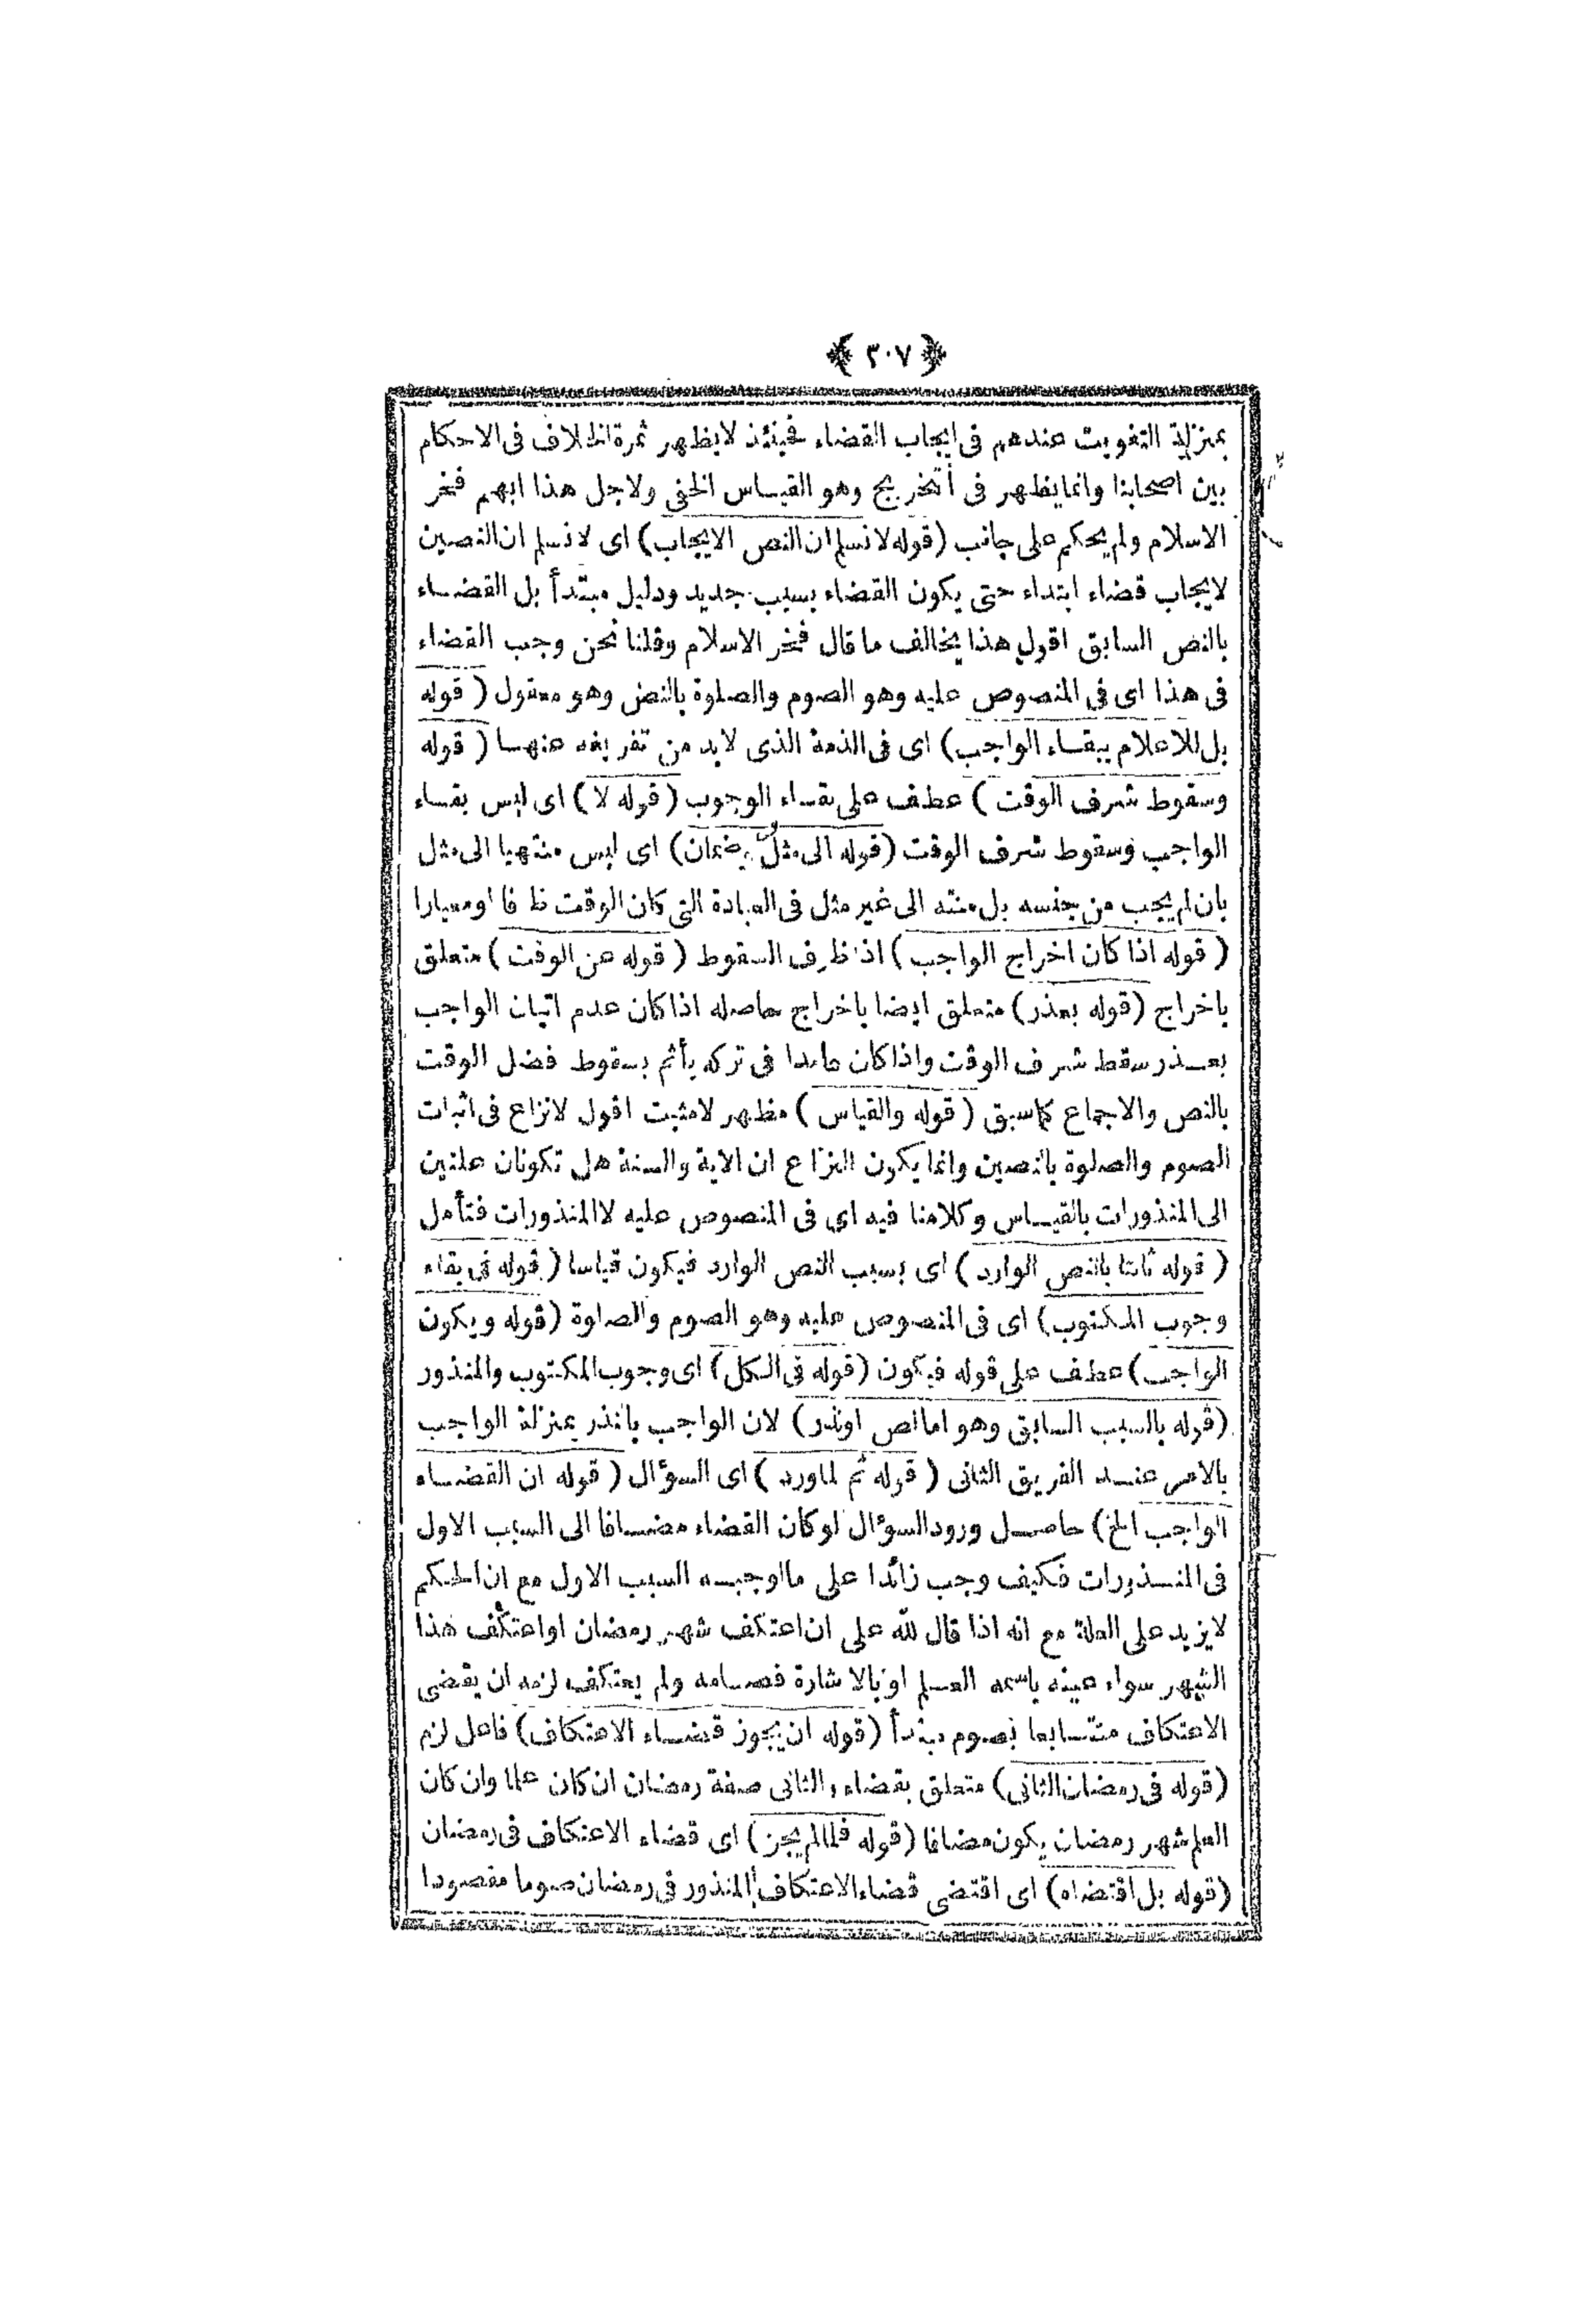 ﴿ ٣٠٧ ﴾
بمنزلة التفويت عندهم فى ايجاب القضاء فحينئذ لايظهر ثمرة الخلاف فى الاحكام
بين اصحابنا وانمايظهر فى التخريج وهو القياس الخفى ولاجل هذا ابهم فخر
الاسلام ولم يحكم على جانب (قوله لانسلم ان النص الايجاب) اى لانسلم ان النصين
لايجاب قضاء ابتداء حتى يكون القضاء بسبب جديد ودليل مبتدأ بل القضاء
بالنص السابق اقول هذا يخالف ما قال فخر الاسلام وقلنا نحن وجب القضاء
فى هذا اى فى المنصوص عليه وهو الصوم والصلوة بالنص وهو معقول ( قوله
بل للاعلام ببقاء الواجب) اى فى الذمة الذى لابد من تفريغه عنها ( قوله
وسقوط شرف الوقت ) عطف على بقاء الوجوب (قوله لا) اى ليس بقاء
الواجب وسقوط شرف الوقت (قوله الى مثل وضمان) اى ليس منتهيا الى مثل
بان لم يجب من جنسه بل منته الى غير مثل فى العبادة التى كان الوقت ظرفا اومعيارا
( قوله اذا كان اخراج الواجب ) اذ ظرف السقوط ( قوله عن الوقت ) متعلق
باخراج (قوله بعذر) متعلق ايضا باخراج حاصله اذا كان عدم اتيان الواجب
بعذر سقط شرف الوقت واذا كان عامدا فى تركه يأثم بسقوط فضل الوقت
بالنص والاجماع كماسبق ( قوله والقياس ) مظهر لامثبت اقول لانزاع فى اثبات
الصوم والصلوة بالنصين وانما يكون النزاع ان الاية والسنة هل تكونان علتين
الى المنذورات بالقياس وكلامنا فيه اى فى المنصوص عليه لا المنذورات فتأمل
( قوله ثابتا بالنص الوارد ) اى بسبب النص الوارد فيكون قياسا ( قوله فى بقاء
وجوب المكتوب) اى فى المنصوص عليه وهو الصوم والصلوة (قوله ويكون
الواجب) عطف على قوله فيكون (قوله فى الكل) اى وجوب المكتوب والمنذور
(قوله بالسبب السابق وهو اما نص اونذر) لان الواجب بالنذر بمنزلة الواجب
بالامر عند الفريق الثانى ( قوله ثم لماورد ) اى السؤال ( قوله ان القضاء
الواجب الخ) حاصل ورود السؤال لوكان القضاء مضافا الى السبب الاول
فى المنذورات فكيف وجب زائدا على ما اوجبه السبب الاول مع ان الحكم
لايزيد على العلة مع انه اذا قال لله على ان اعتكف شهر رمضان اواعتكف هذا
الشهر سواء عينه باسمه العلم اوبالاشارة فصامه ولم يعتكف لزمه ان يقضى
الاعتكاف متتابعا بصوم مبتدأ (قوله ان يجوز قضاء الاعتكاف) فاعل لزم
(قوله فى رمضان الثانى) متعلق بقضاء والثانى صفة رمضان ان كان علما وان كان
العلم شهر رمضان يكون مضافا (قوله فلمالم يجز) اى قضاء الاعتكاف فى رمضان
(قوله بل اقتضاه) اى اقتضى قضاء الاعتكاف المنذور فى رمضان صوما مقصودا